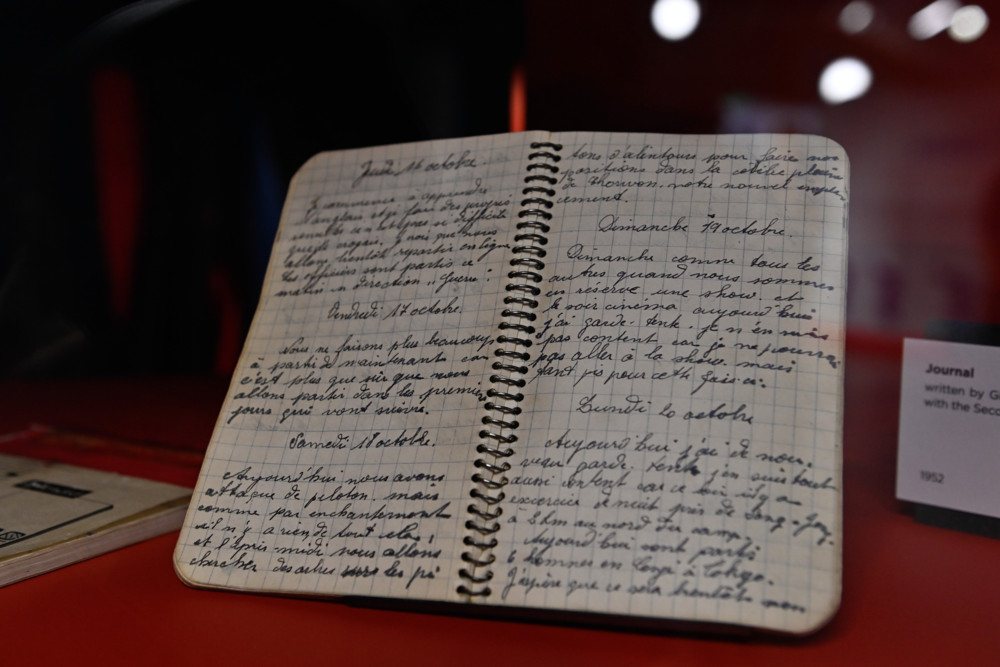 Jeudi 16 octobre.
Je commence à apprendre
l'anglais et je fais des progrès
allons bientôt repartir en ligne
les officiers sont partis ce
matin en direction "Guerre".
Vendredi 17 octobre.
Nous ne faisons plus beaucoup
à partir de maintenant car
c'est plus que sûr que nous
allons partir dans les premiers
jours qui vont suivre.
Samedi 18 octobre.
Aujourd'hui nous avons
attaque de peloton. mais
comme par enchantement
il n'y a rien de tout cela,
et l'après midi nous allons
chercher des arbres sur les pi
tons d'alentours pour faire nos
positions dans la
de notre nouvel empla
cement.
Dimanche 19 octobre.
Dimanche comme tous les
autres quand nous sommes
en réserve une show. et
le soir cinéma aujourd'hui
j'ai garde. tente. je n'en suis
pas content car je ne pourrai
pas aller à la show. mais
tant pis pour cette fois-ci.
Lundi 20 octobre
Aujourd'hui j'ai de nou-
veau garde. tente j'en suis tout
aussi content car ce soir il y a
exercice de nuit près de
à 8 km au nord du camp.
Aujourd'hui sont partis
6 hommes en congé à Tokyo.
J'espère que ce sera bientôt mon
Journal
written by G
with the Seco
1952